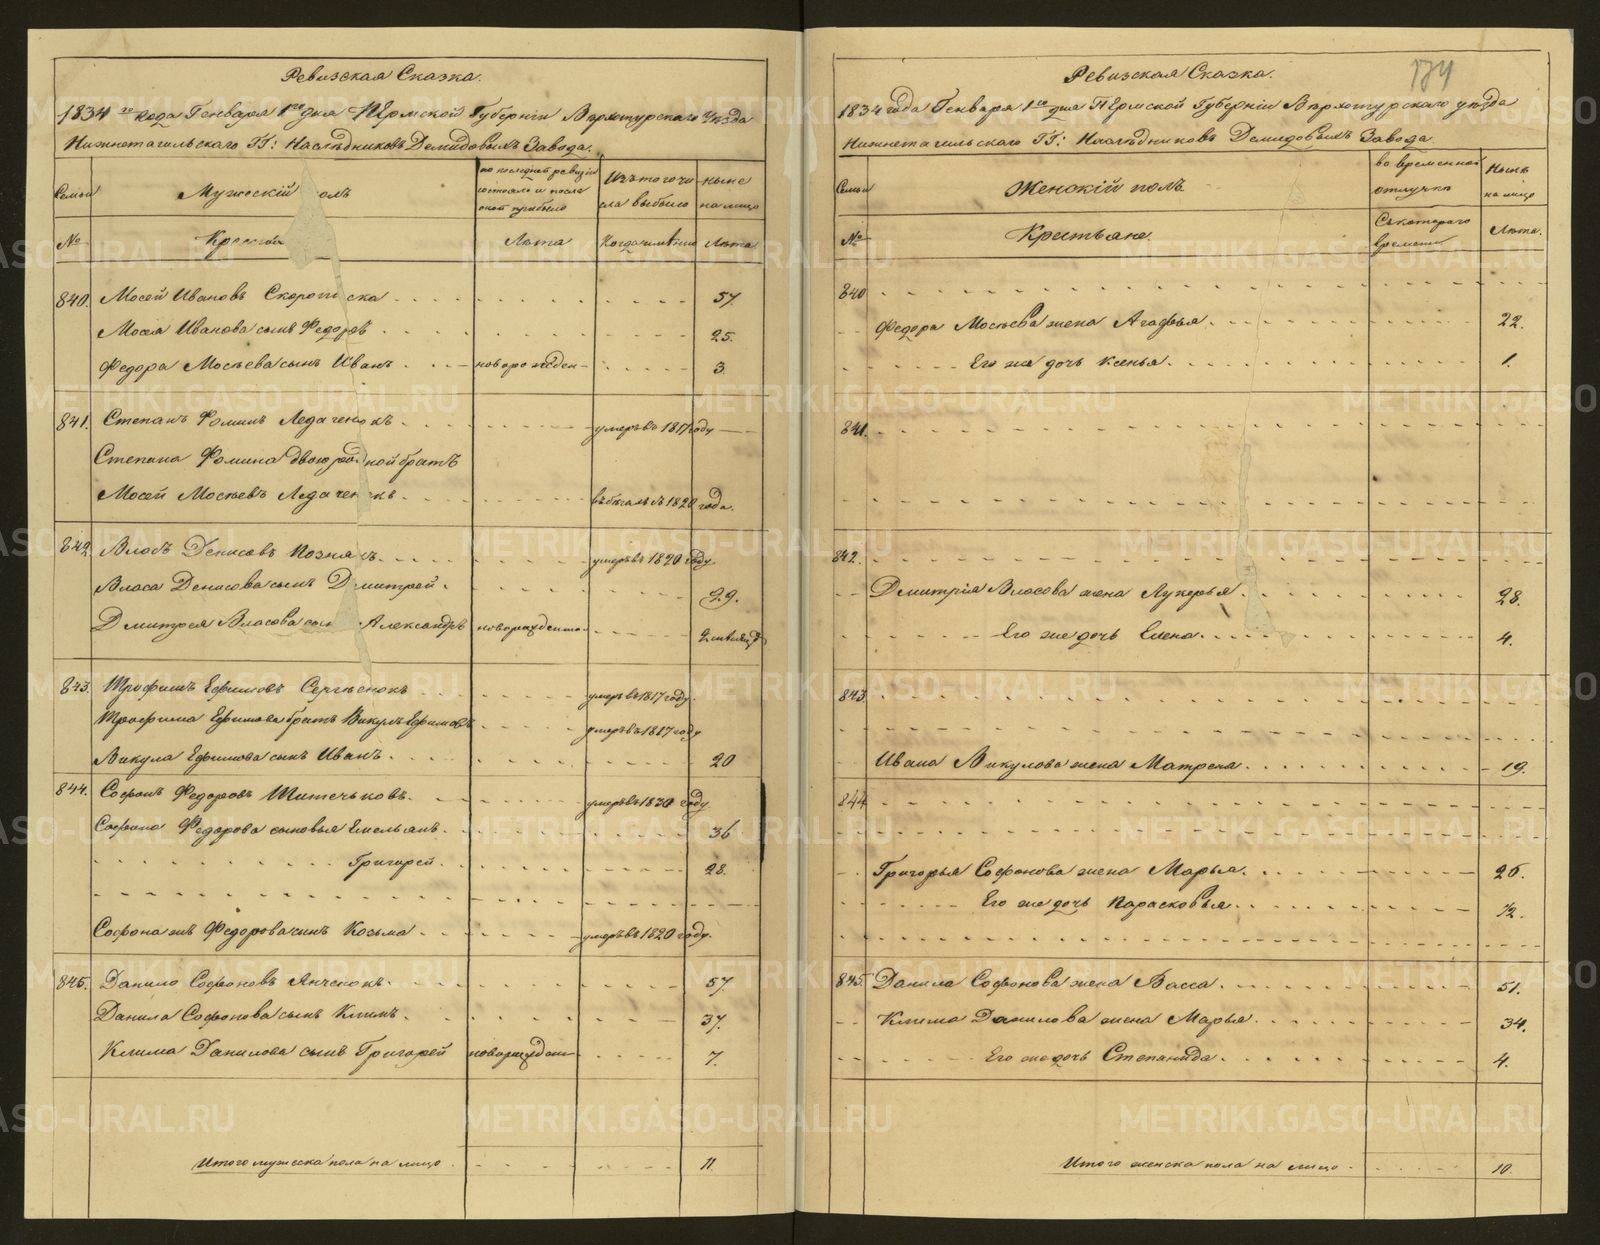 Ревизская Сказка.
1834 го года Генваря 1го дня Пермской Губернiи Верхотурскаго Уѣзда
Нижнетагильскаго ГГ: Наслѣдниковъ Демидовыхъ Завода.
Семьи
Мужескiй олъ
по последней ревизiи состояло и после оной прибыло
Изъ того числа выбыло
ныне на лицо
№
Крестья
Лѣта
Когда имянно
Лѣта
840. Мосей Ивановъ Скоропи ска 57.
Мосея Иванова сынъ Федоръ 25.
Федора Мосѣева сынъ Иванъ новорожден 3.
841. Степанъ Фоминъ Ледаченокъ умеръ въ 1817 году
Степана Фомина двоюродной братъ
Мосей Мосѣевъ Ледаченокъ въ бѣгахъ съ 1820 года.
842. Власъ Денисовъ Познякъ умеръ въ 1820 году
Власа Денисова сынъ Дмитрей 29.
Дмитрея Власова сынъ Александръ новорожденно 2 месяца
843. Трофимъ Ефимовъ Сергѣенокъ умеръ въ 1817 году.
Трофима Ефимова братъ Викулъ Ефимовъ умеръ въ 1817 году
Викула Ефимова сынъ Иванъ 20
844. Софонъ Федоровъ Шитеньковъ умеръ въ 1830 году
Софона Федорова сыновья Емельянъ 36
Григорей 28.
Софона жъ Федорова сынъ Козьма умеръ въ 1820 году.
845. Данило Софоновъ Янченокъ 57.
Данила Софонова сынъ Климъ 37.
Клима Данилова сынъ Григорей новорожден 7.
Итого мужеска пола на лицо 11.
174
Ревизская Сказка.
1834 года Генваря 1го дня Пермской Губернiи Верхотурскаго уѣзда
Нижнетагильскаго ГГ: Наслѣдниковъ Демидовыхъ Завода
Семьи
Женскiй полъ
во временной отлучкѣ
Нынѣ на лицо
№
Крестьяне.
Съ котораго времени
Лѣта.
840
Федора Мосѣева жена Агафья 22.
Его же дочь Ксенья 1.
841.
842.
Дмитрiя Власова жена Лукерья 28.
Его же дочь Елена 4.
843
Ивана Викулова жена Матрена 19.
844
Григорья Софонова жена Марья. 26.
Его же дочь Парасковья 1/2.
845. Данила Софонова жена Васса 51.
Клима Данилова жена Марья 34.
Его же дочь Степанида 4.
Итого женска пола на лицо 10.
METRIKI.GASO-URAL.RU